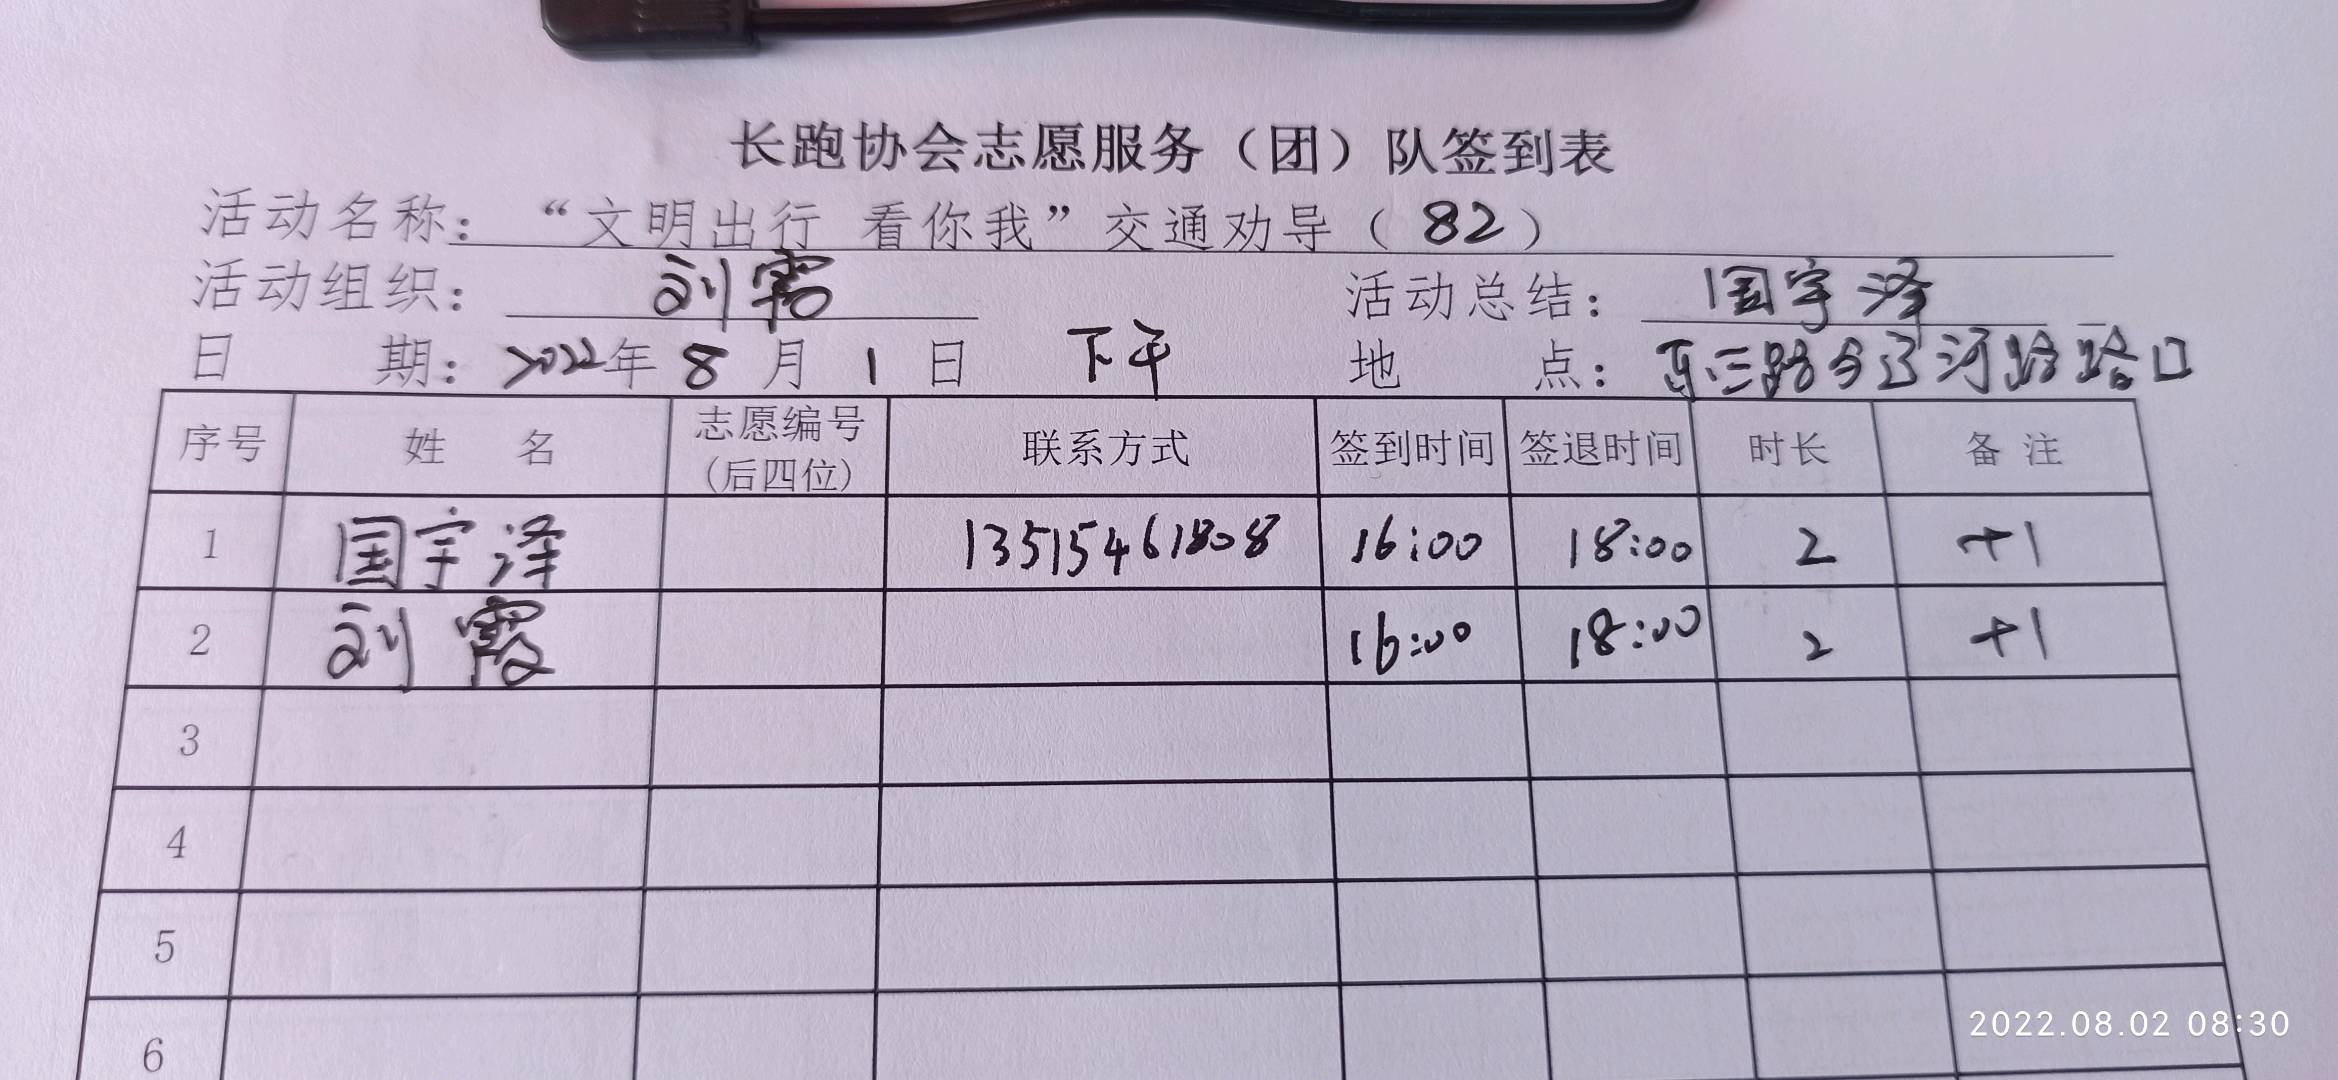 长跑协会志愿服务（团）队签到表
活动名称：“文明出行 看你我”交通劝导（82）
活动组织：刘霞 活动总结：国宇泽
日 期：2022年8月1日 下午 地 点：东三路与辽河路路口
序号 姓 名 志愿编号（后四位） 联系方式 签到时间 签退时间 时长 备 注
1 国宇泽 13515461808 16:00 18:00 2 +1
2 刘霞 16:00 18:00 2 +1
3
4
5
6
2022.08.02 08:30